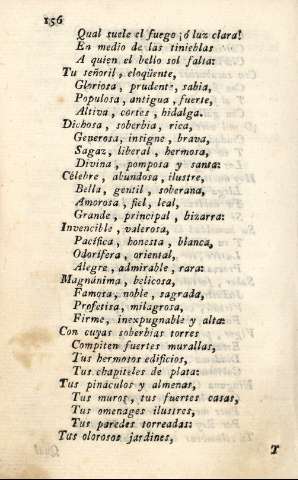 156
Qual suele el fuego ¡ó luz clara!
En medio de las tinieblas
A quien el bello sol falta:
Tu señoril, eloqüente,
Gloriosa, prudente, sabia,
Populosa, antigua, fuerte,
Altiva, cortes, hidalga.
Dichosa, soberbia, rica,
Generosa, insigne, brava,
Sagaz, liberal, hermosa,
Divina, pomposa y santa:
Célebre, abundosa, ilustre,
Bella, gentil, soberana,
Amorosa, fiel, leal,
Grande, principal, bizarra:
Invencible, valerosa,
Pacífica, honesta, blanca,
Odorífera, oriental,
Alegre, admirable, rara:
Magnánima, belicosa,
Famosa, noble, sagrada,
Profetisa, milagrosa,
Firme, inexpugnable y alta:
Con cuyas soberbias torres
Compiten fuertes murallas,
Tus hermosos edificios,
Tus chapiteles de plata:
Tus pináculos y almenas,
Tus muros, tus fuertes casas,
Tus omenages ilustres,
Tus paredes torreadas:
Tus olorosos jardines,
T